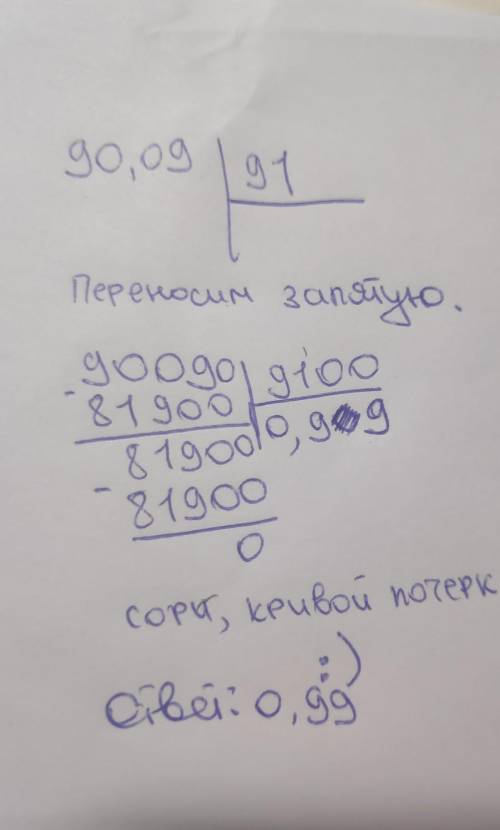 90,09 91
Переносим запятую.
90090 9100
- 81900 0,99
81900
- 81900
0
сори, кривой почерк
:)
Ответ: 0,99